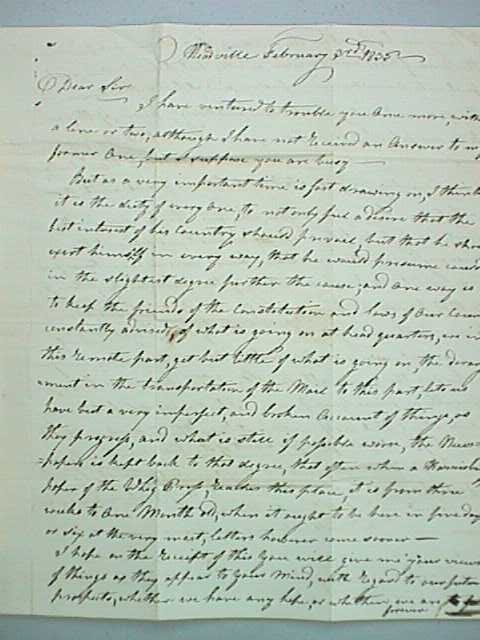 Meadville February 3rd 1835
Dear Sir
I have ventured to trouble you One more, with
a line or two, although I have not received an Answer to my
former One, but I suppose you are busy
But as a very important time is fast drawing on, I think
it is the duty of every One, to not only feel a desire that the
best interest of his Country should prevail, but that he
exert himself in every way, that he would presume could
in the slightest degree further the cause; and One way is
to keep the friends of the Constitution and laws of Our
constantly advised, of what is going on at head quarters, we in
this remote part, get but little of what is going on, the
ment in the transportation of the Mail to this part, lets us
have but a very imperfect, and broken Account of things, as
they progress, and what is still if possible worse, the News=
=papers is kept back to that degree, that often when a
paper of the Whig Press, reaches this place, it is from three
weeks to One Month old, when it ought to be here in five days
or six at the very most, letters however come sooner
I hope on the receipt of this You will give me your views
of things as they appear to Your Mind, with regard to our future
prospects, whether we have any hope, or whether we are
forever